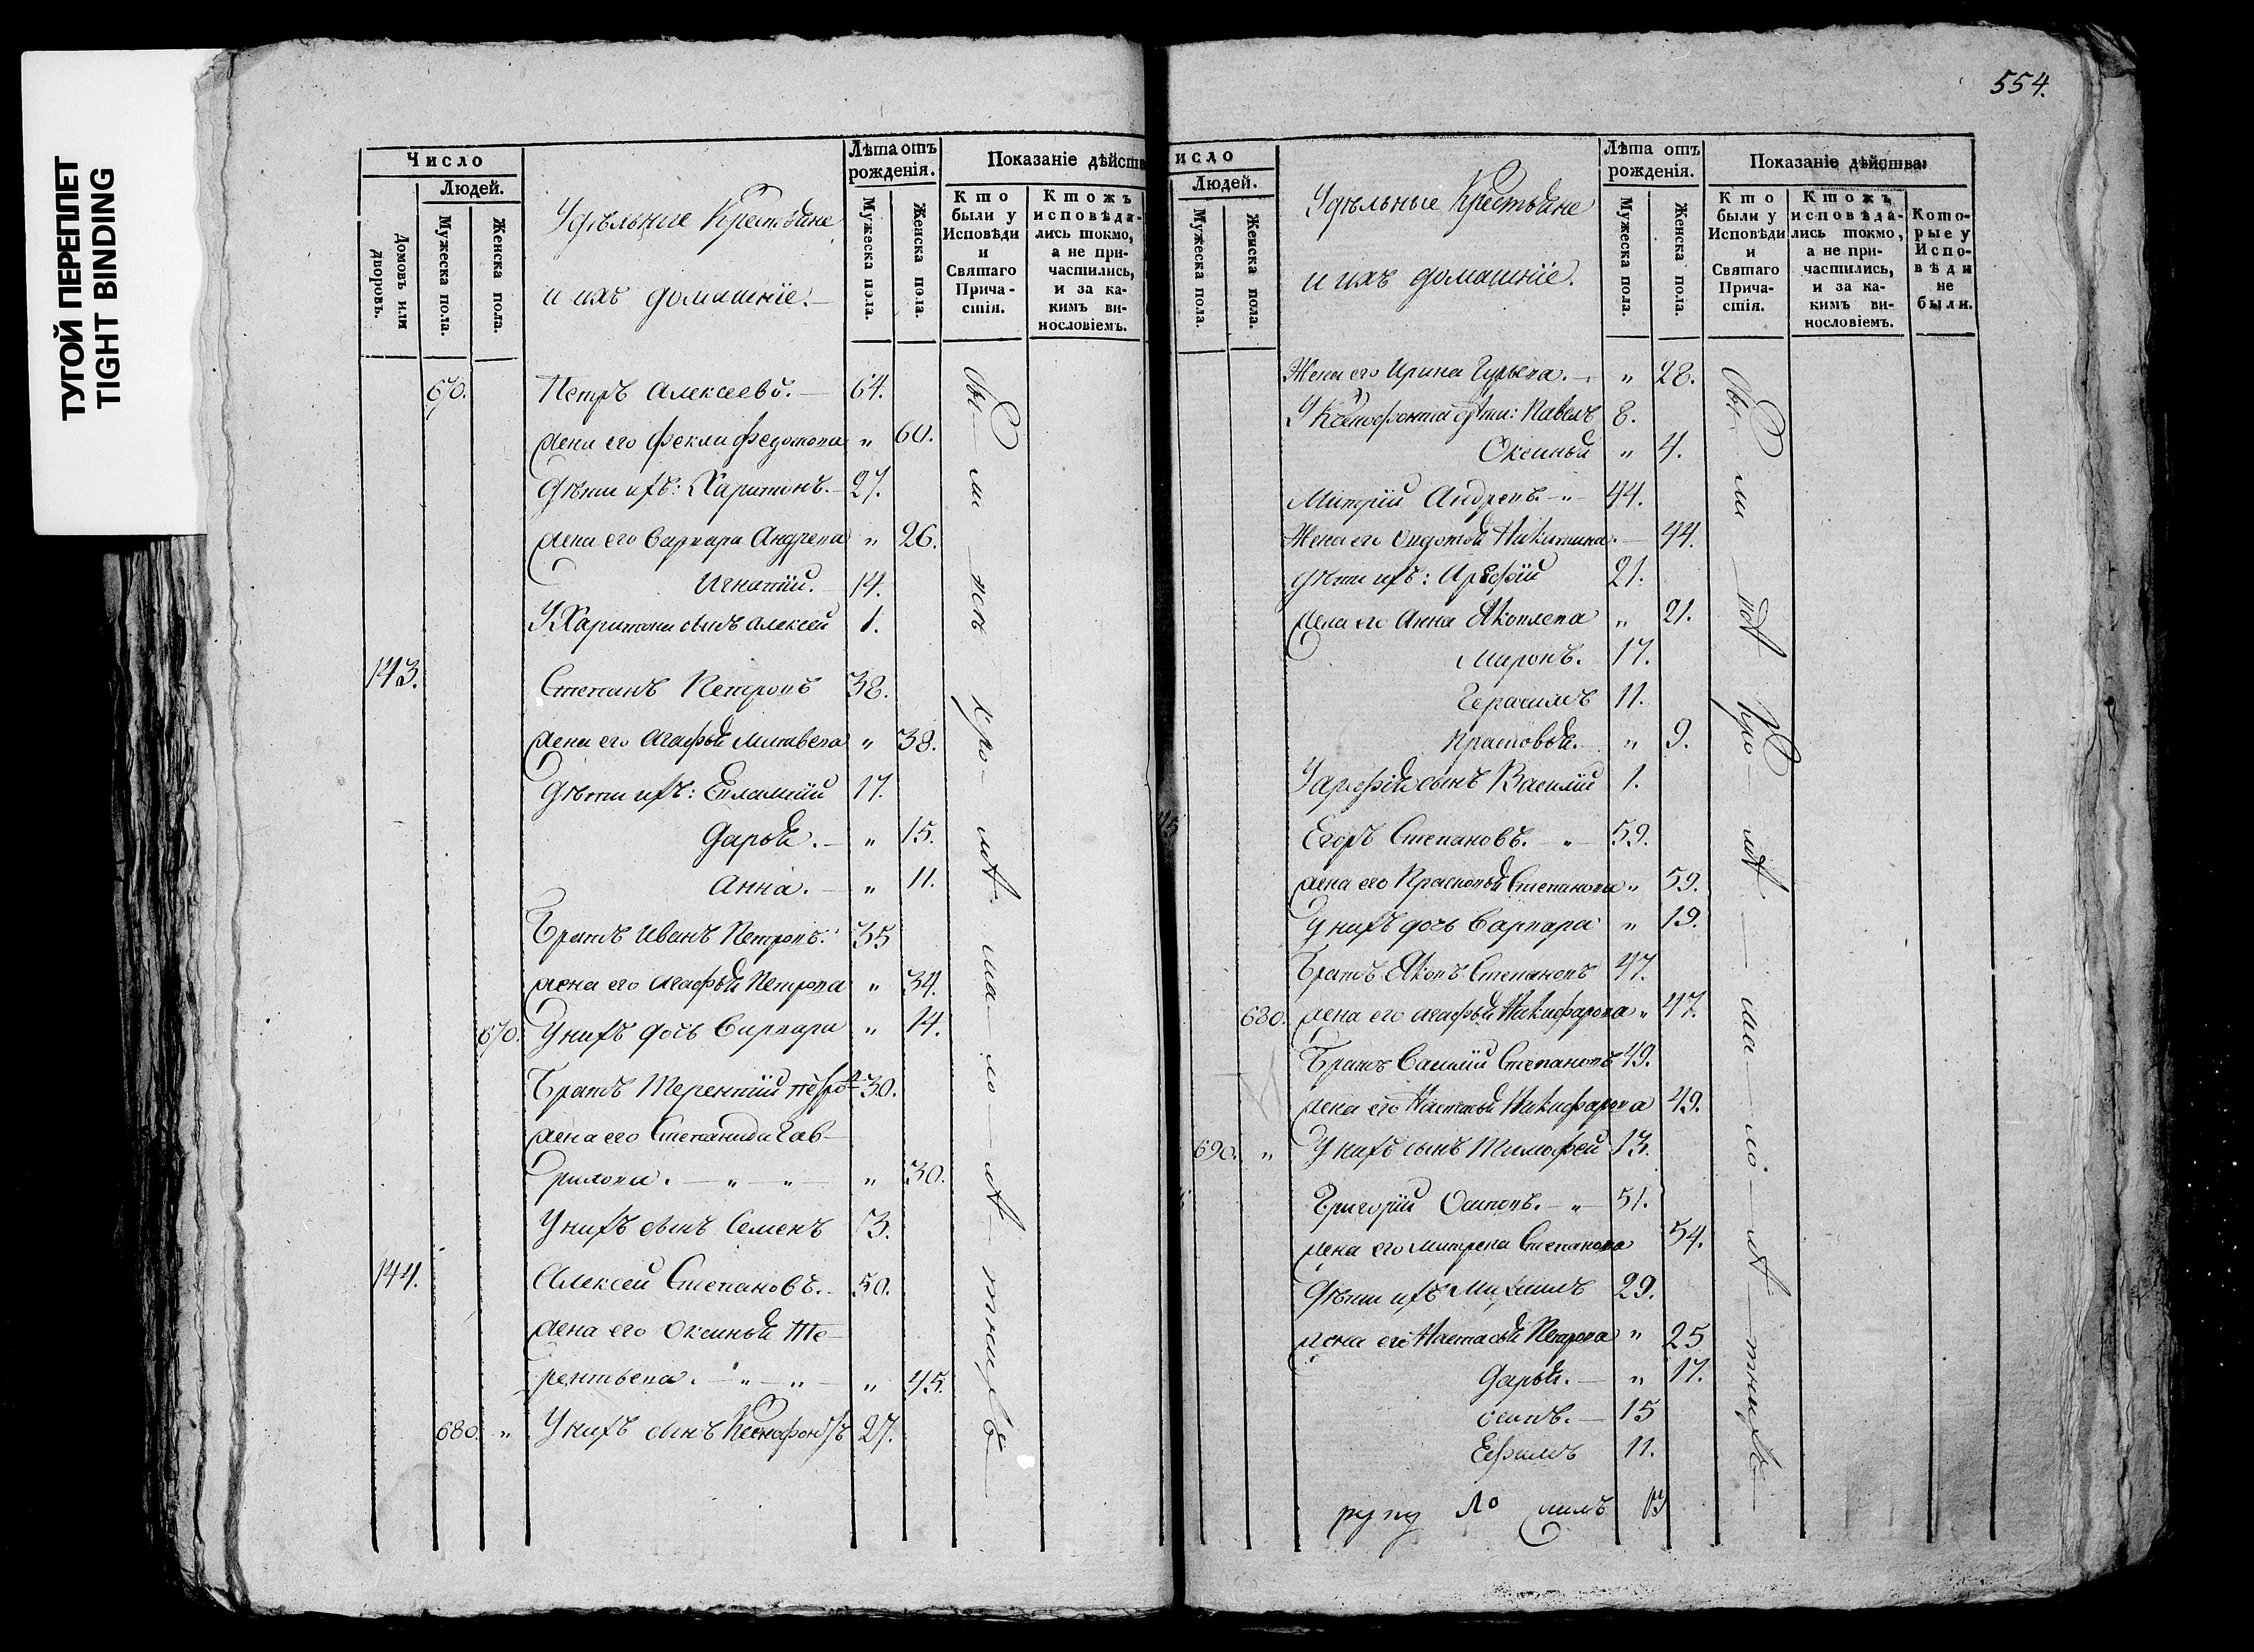 ТУГОЙ ПЕРЕПЛЕТ
TIGHT BINDING
Число
Людей.
Домовъ или дворовъ.
Мужеска пола.
Женска пола.
Удѣльные Крестьяне
и ихъ домашнiе.
Лѣта отъ рожденiя.
Мужеска пола.
Женска пола.
Показанiе дѣйств
Кто были у Исповѣди и Святаго Прича-стiя.
Ктожъ исповѣда-лись токмо, а не при-частились, и за ка-кимъ ви-нословiемъ.
670. Петръ Алексеевъ. — 64.
жена его Фекла Федотова „ 60.
Дѣти ихъ: Харитонъ. 27.
жена его Варвара Андреева „ 26.
Игнатiй. 14.
У Харитона сынъ Алексей 1.
143. Степанъ Петровъ 38.
жена его Агафья Матвеева „ 38.
Дѣти ихъ: Евлампiй 17.
Дарья. — „ 15.
Анна. — „ 11.
Братъ Иванъ Петровъ. 35
жена его Агафья Петрова „ 34.
670. У нихъ дочь Варвара „ 14.
Братъ Терентiй Петро 30.
жена его Степанида Гав-
рилова. — „ — „ — „ 30.
У нихъ сынъ Семенъ 13.
144. Алексей Степановъ. 50.
жена его Оксинья Те-
рентьева. — „ — „ — „ 45.
680. „ У нихъ сынъ Ксенофонтъ 27.
бы — ли
554.
исло
Людей.
Мужеска пола.
Женска пола.
Удѣльные Крестьяне
и ихъ домашнiе.
Лѣта отъ рожденiя.
Мужеска пола.
Женска пола.
Показанiе дѣйства:
Кто были у Исповѣди и Святаго Прича-стiя.
Ктожъ исповѣда-лись токмо, а не при-частились, и за ка-кимъ ви-нословiемъ.
Кото-рые у Испо-вѣди не были.
Жена его Ирина Гурьева. — „ 28.
У Ксенофонта дѣти: Павелъ 8.
Оксинья „ 4.
Митрiй Андреевъ. „ 44.
Жена его Овдотья Никитина. — 44.
Дѣти ихъ: Арефiй 21.
жена его Анна Яковлева „ 21.
Миронъ. 17.
Герасимъ 11.
Прасковья. — „ 9.
У Арефiя сынъ Василiй 1.
Егоръ Степановъ. „ 59.
жена его Прасковья Степанова „ 59.
У нихъ дочь Варвара „ 19.
Братъ Яковъ Степановъ 47.
680. жена его Агафья Никифарова „ 47.
Братъ Василiй Степановъ 49.
жена его Настасья Никифарова 49.
690. „ У нихъ сынъ Тимофей 13.
Григорiй Осиповъ. — „ 51.
жена его Матрена Степанова 54.
Дѣти ихъ Михаилъ 29.
жена его Настасья Петрова „ 25
Дарья. — „ 17.
Осипъ. — 15
Ефимъ 11.
бы — ли